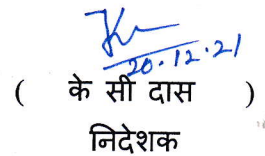 20.12.21
( के सी दास )
निदेशक